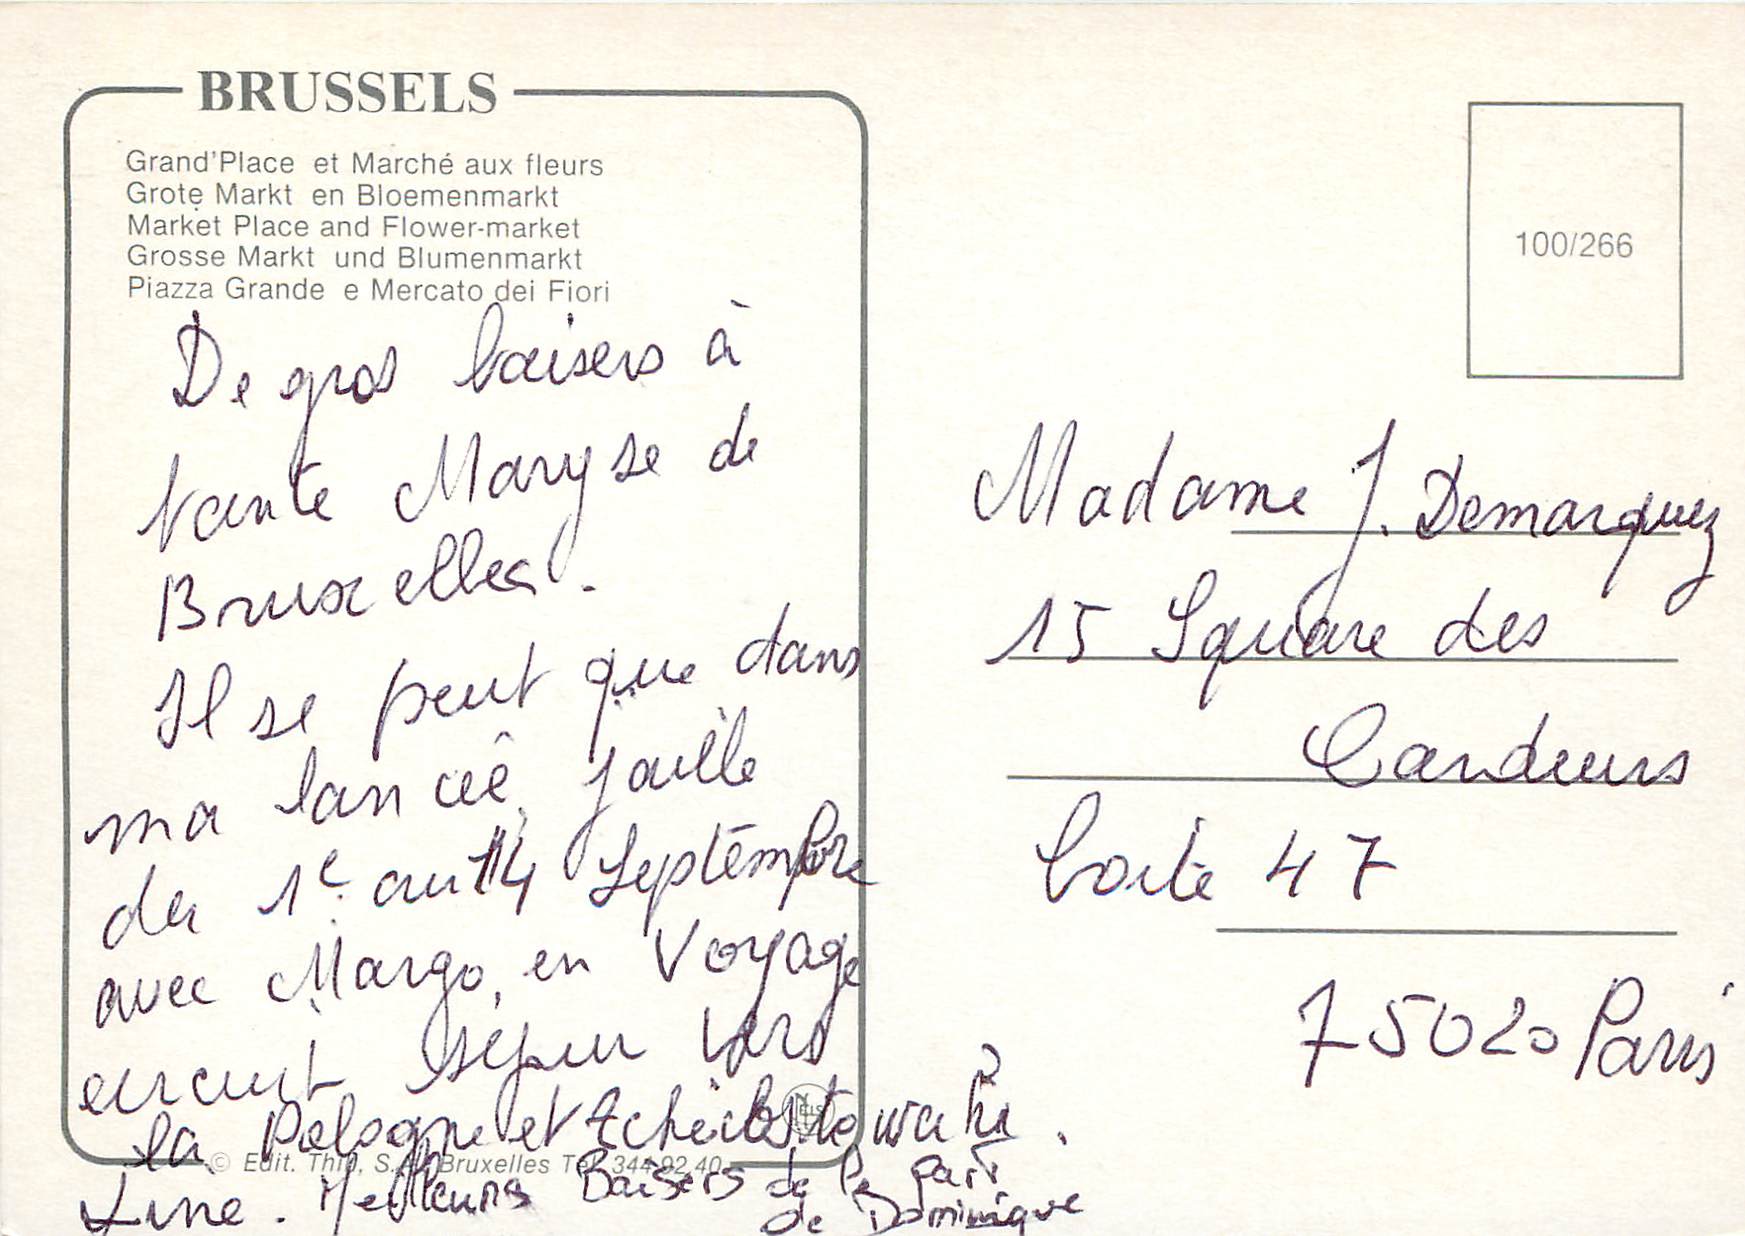 BRUSSELS
Grand'Place et Marché aux fleurs
Grote Markt en Bloemenmarkt
Market Place and Flower-market
Grosse Markt und Blumenmarkt
Piazza Grande e Mercato dei Fiori
De gros baisers à
tante Maryse de
Bruxelles.
Il se peut que dans
ma lancée, j'aille
du 1e au 14 Septembre
avec Margo, en Voyage
circuit séjour vers
la Pologne et
Line. Meilleurs Baisers de la part
de Dominique
© Edit. Thill, S.A. Bruxelles Tél. 344.92.40
100/266
Madame J. Demarquez
15 Square des
Cardeurs
Porte 47
75020 Paris